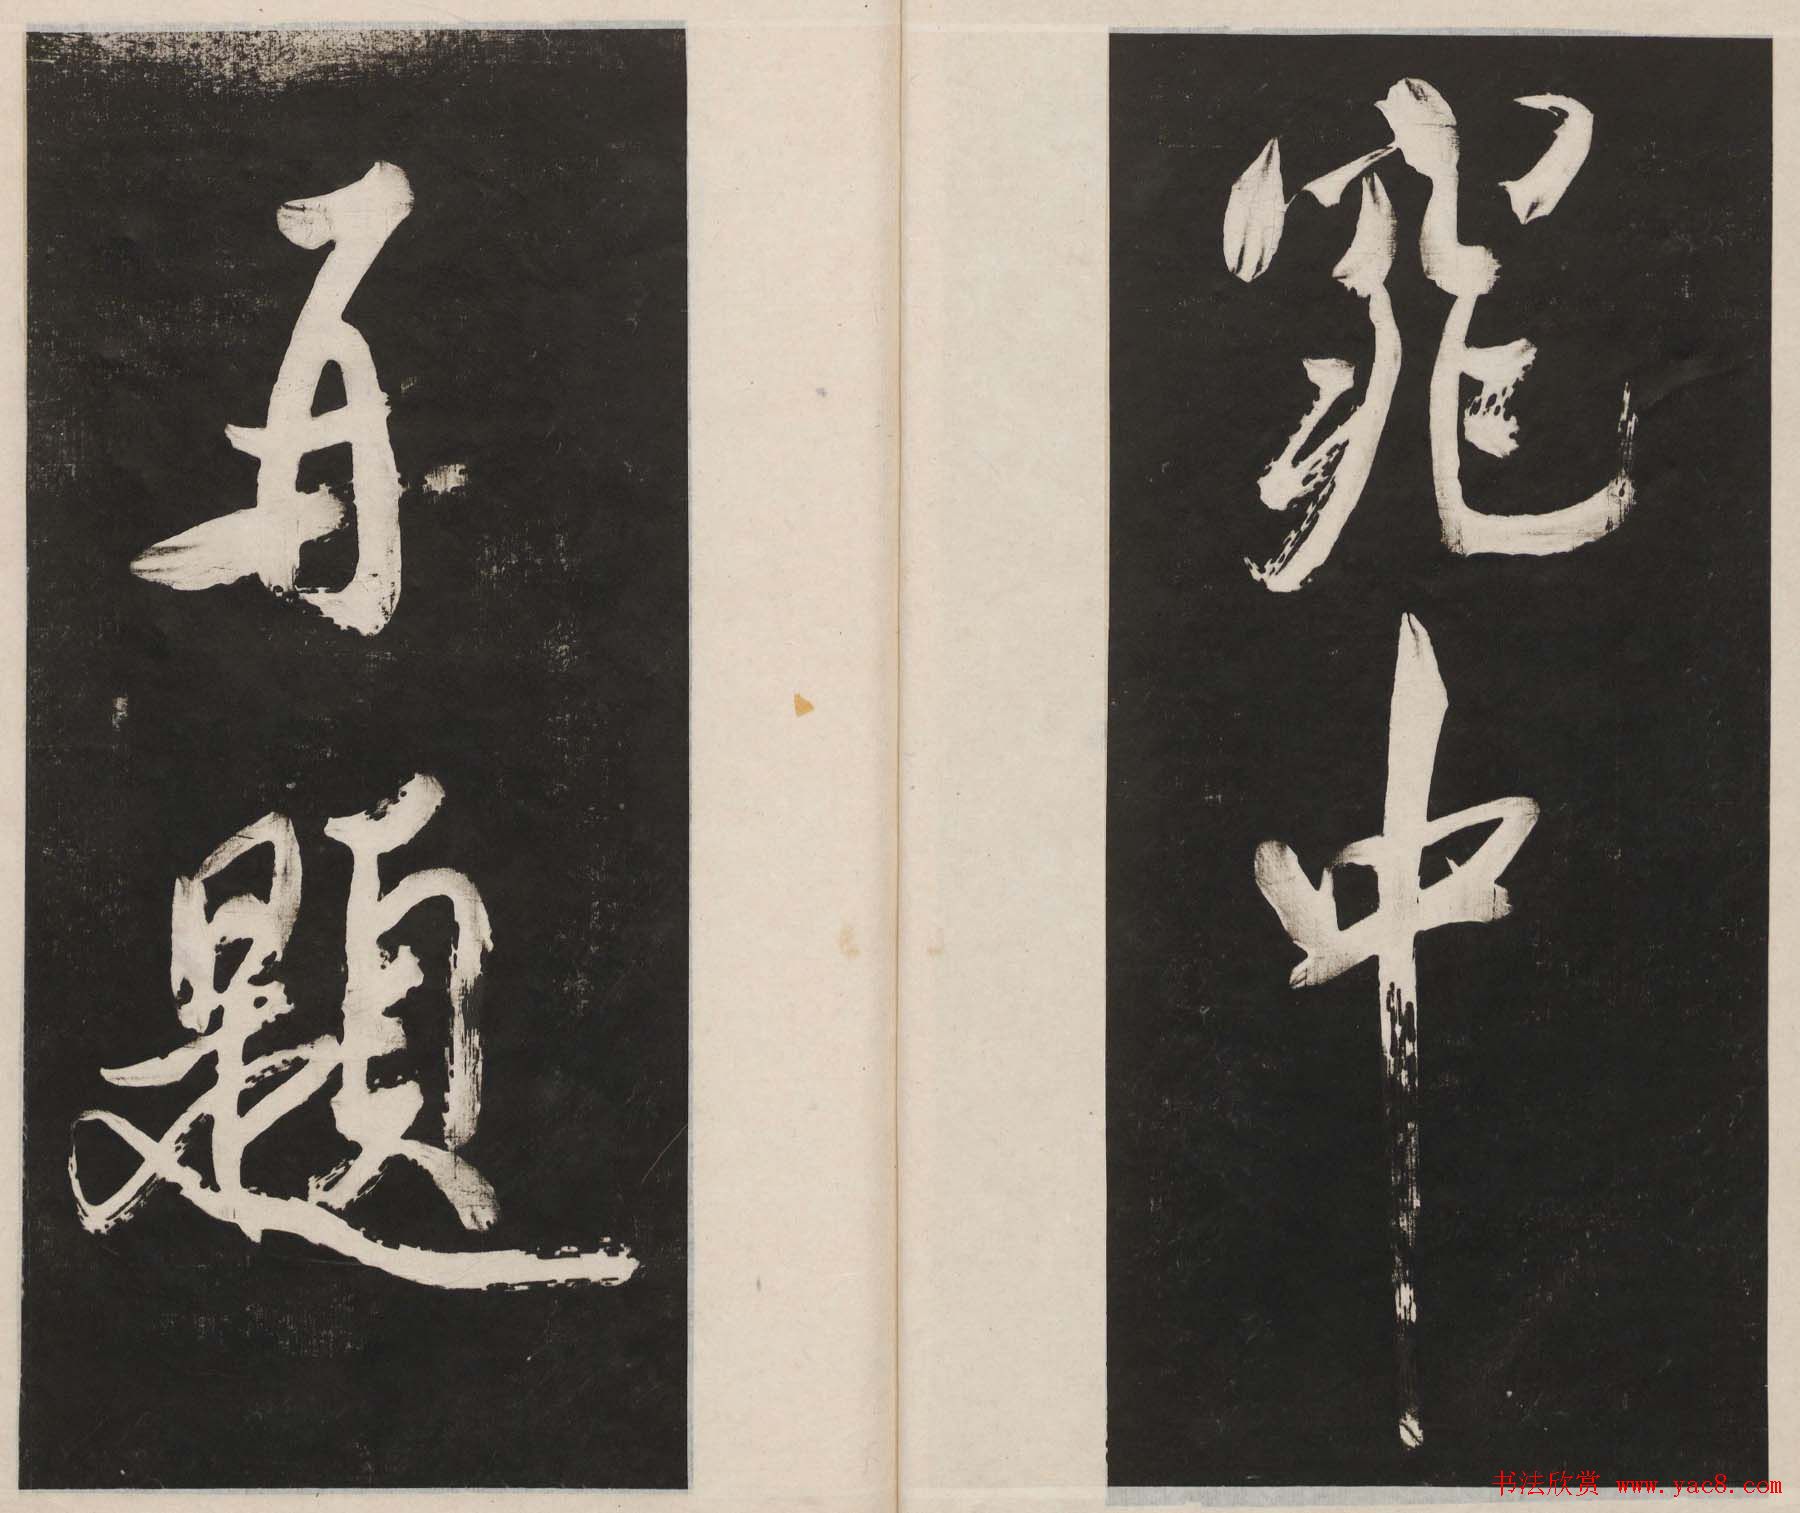 窕中
再題
书法欣赏 www.yac8.com